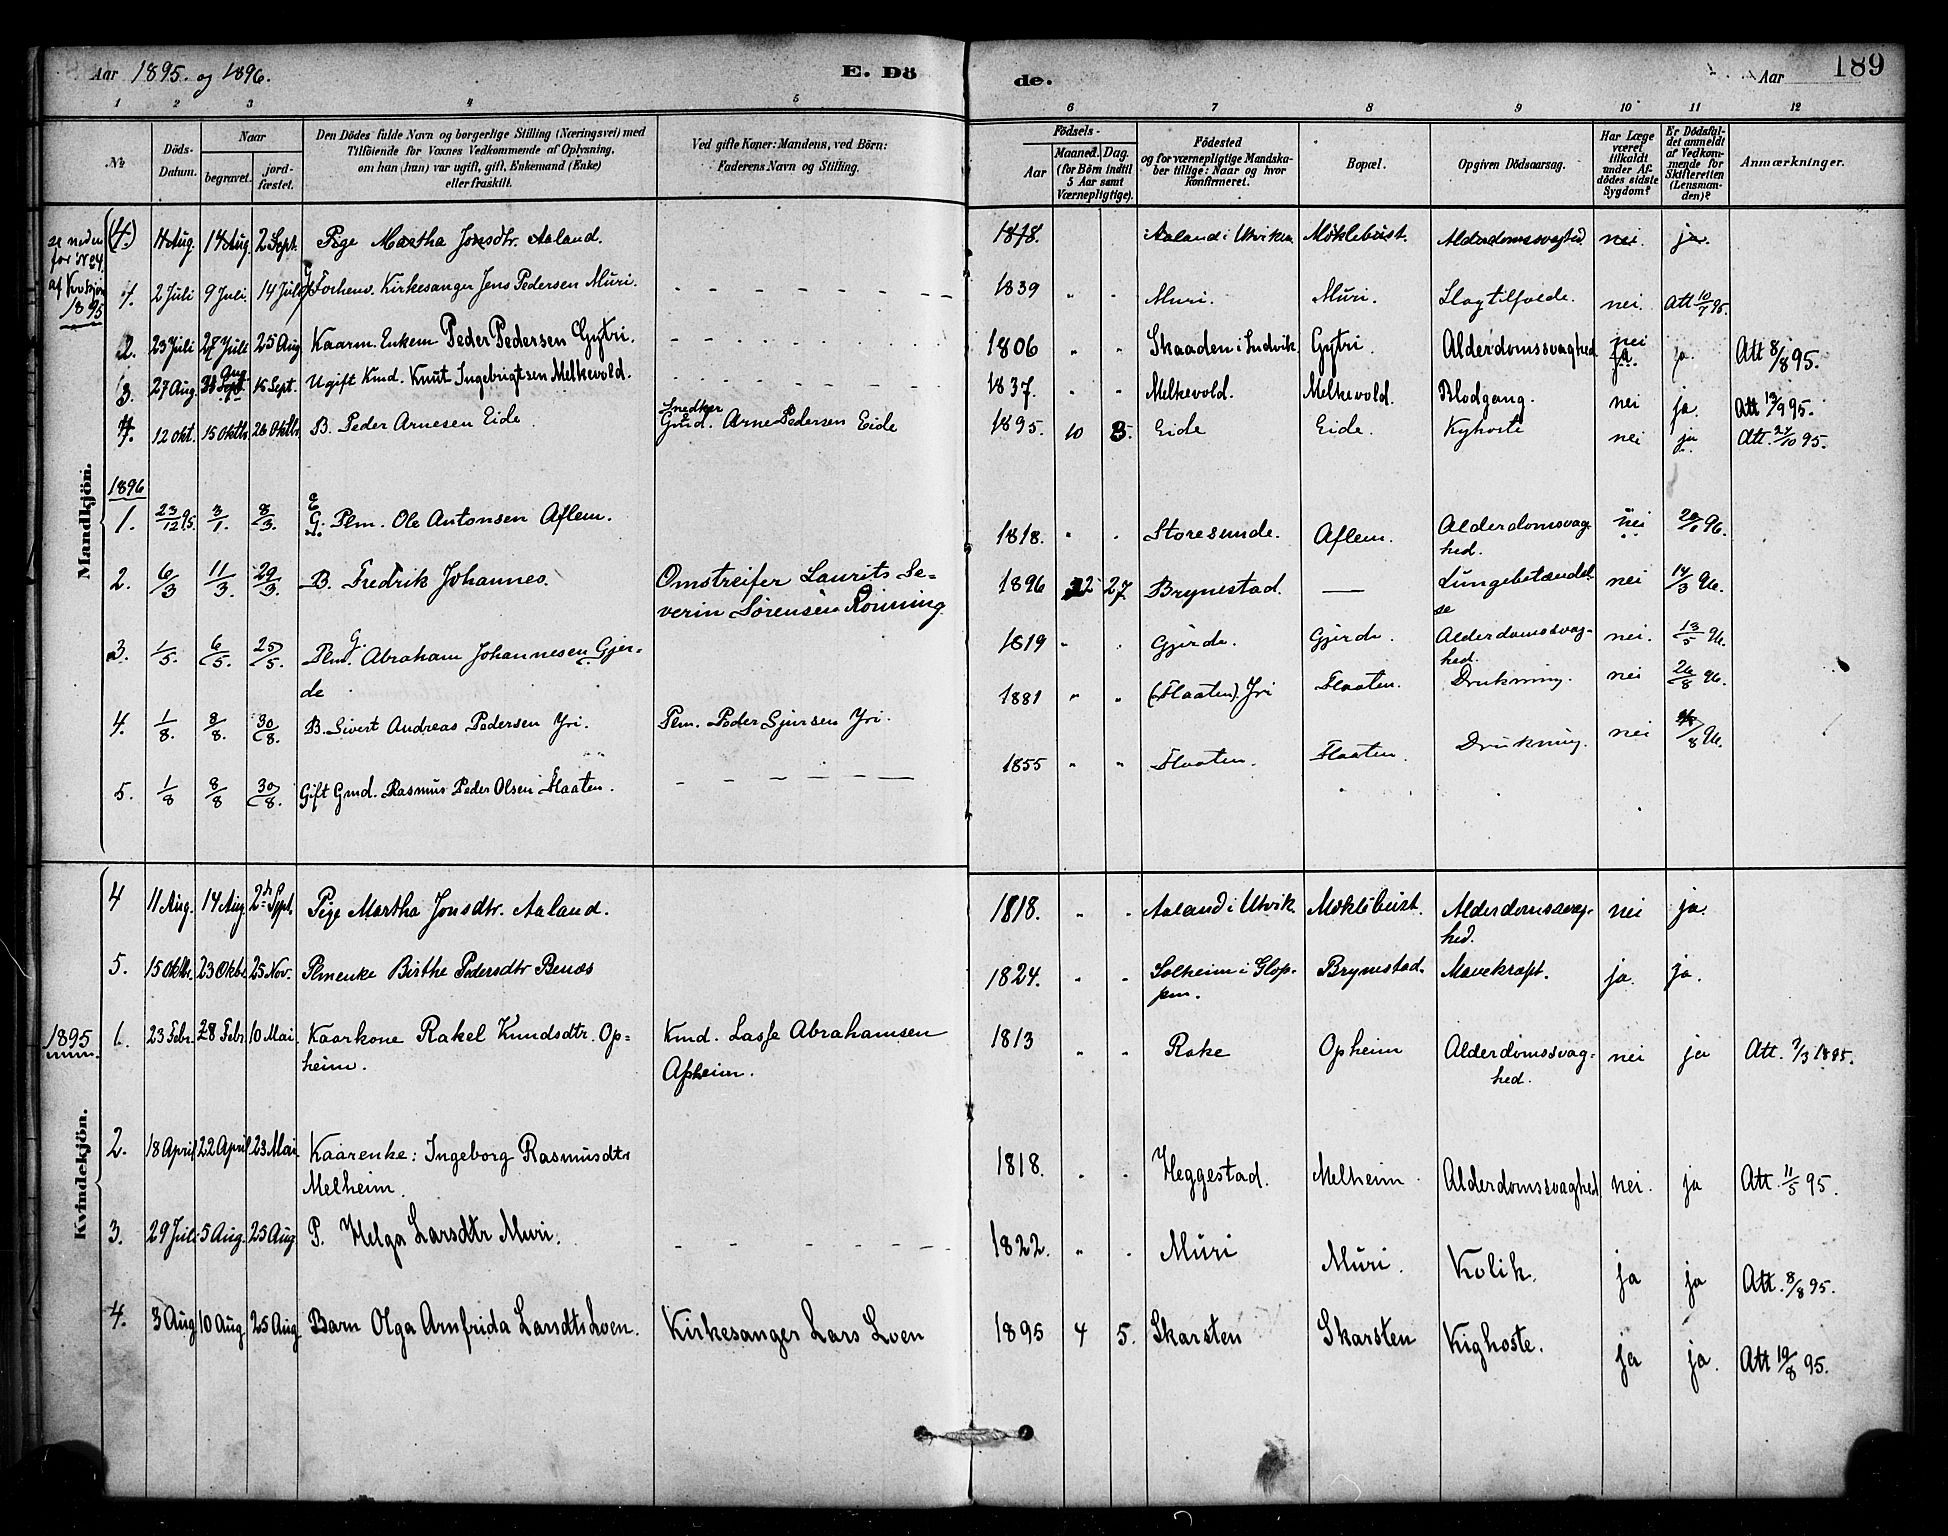 Aar 1895. og 1896. E. Dö de. Aar 189
1 2 3 4 5 6 7 8 9 10 11 12
№ Döds-Datum. Naar begravet. jordfæstet. Den Dödes fulde Navn og borgerlige Stilling (Næringsvei) med Tilföiende for Voxnes Vedkommende af Oplysning, om han (hun) var ugift, gift, Enkemand (Enke) eller fraskilt. Ved gifte Koner: Mandens, ved Börn: Faderens Navn og Stilling. Födsels- Aar Maaned. Dag. (for Börn indtil 5 Aar samt Værnepligtige). Födested og for værnepligtige Mandskaber tillige: Naar og hvor Konfirmeret. Bopæl. Opgiven Dödsaarsag. Har Læge været tilkaldt under Afdödes sidste Sygdom? Er Dödsfaldet anmeldt af Vedkommende for Skifteretten (Lensmanden)? Anmærkninger.
Mandkjön.
se neden for №4. af Kvkjön 1895
(4.) 11 Aug. 14 Aug. 2 Sept. Pige Martha Jonsdtr. Aaland. 1818. Aaland i Utviken Moklebust. Alderdomssvaghed nei. ja.
1. 2 Juli 9 Juli. 14 Juli Forhenv. Kirkesanger Jens Pedersen Muri. 1839 " " Muri. Muri. Slagtilfælde. nei Att 10/7 95.
2. 23 Juli 28 Juli 25 Aug Kaarm. Enkem Peder Pedersen Gytri. 1806 " " Skaaden i Indvik Gytri. Alderdomssvaghed nei ja. ja. Att 8/8 95.
3. 27 Aug. 31 Aug 15 Sept. Ugift Kmd. Knut Ingebrigtsen Melkevold. 1837. " " Melkevold. Melkevold. Blodgang. nei ja. Att 13/9 95.
4. 12 Okt. 15 Oktb. 26 Oktb. B. Peder Arnesen Eide Snedker Gmd. Arne Pedersen Eide 1895. 10 3. Eide Eide. Kyhoste nei ja Att. 24/10 95.
1896
1. 23/12 95. 3/1. 8/3. G. Plm. Ole Antonsen Aflem. 1818. " . Storesunde. Aflem. Alderdomsvaghed. nei 20/1 96.
2. 6/3 11/3. 29/3. B. Fredrik Johannes. Omstreifer Laurits Severin Sørensen Rönning 1896 2 27 Brynestad. — Lungebetændelse nei 14/3 96.
3. 1/5. 6/5. 25/5. Plm. G. Abraham Johannesen Gjerde 1819 " . Gjerde. Gjerde. Alderdomssvaghed. nei. 13/5 96.
4. 1/8. 8/8. 30/8. B. Sivert Andreas Pedersen Yri. Plm. Peder Sjursen Yri. 1881 " . (Flaaten). Yri Flaaten. Drukning. nei 26/8 96.
5. 1/8 8/8 30/8. Gift Gmd. Rasmus Peder Olsen Flaaten. 1855 " " Flaaten. Flaaten. Drukning. nei /8 96.
Kvindekjön.
4 11 Aug. 14 Aug. 2 Sept. Pige Martha Jonsdtr. Aaland. 1818. " . Aaland i Utvik. Moklebust. Alderdomssvaghed. nei ja.
5. 15 Oktbr. 23 Oktb. 25 Nov. Plmenke Birthe Pedersdtr Benæs 1824. . . Solheim i Gloppen. Brynestad. Mavekræft. ja. ja.
1895 1. 23 Febr. 28 Febr. 10 Mai. Kaarkone Rakel Knudsdtr. Opheim. Kmd. Lasse Abrahamsen Opheim. 1813 " " Rake Opheim Alderdomssvaghed. nei ja Att. 7/3 1895.
2. 18 April 22 April 23 Mai Kaarenke: Ingeborg Rasmusdtr Melheim. 1818. . . Heggestad. Melheim. Alderdomssvaghed nei. ja Att. 11/5 95.
3. 29 Juli 5 Aug. 25 Aug P. Helga Larsdtr Muri. 1822. " . Muri Muri. Kolik. ja ja Att. 8/8 95.
4. 3 Aug 10 Aug. 25 Aug. Barn Olga Arnfrida Larsdtr Loen. Kirkesanger Lars Loen 1895 4 5. Skarsten Skarsten Kighoste. ja ja. Att 19/8 95.